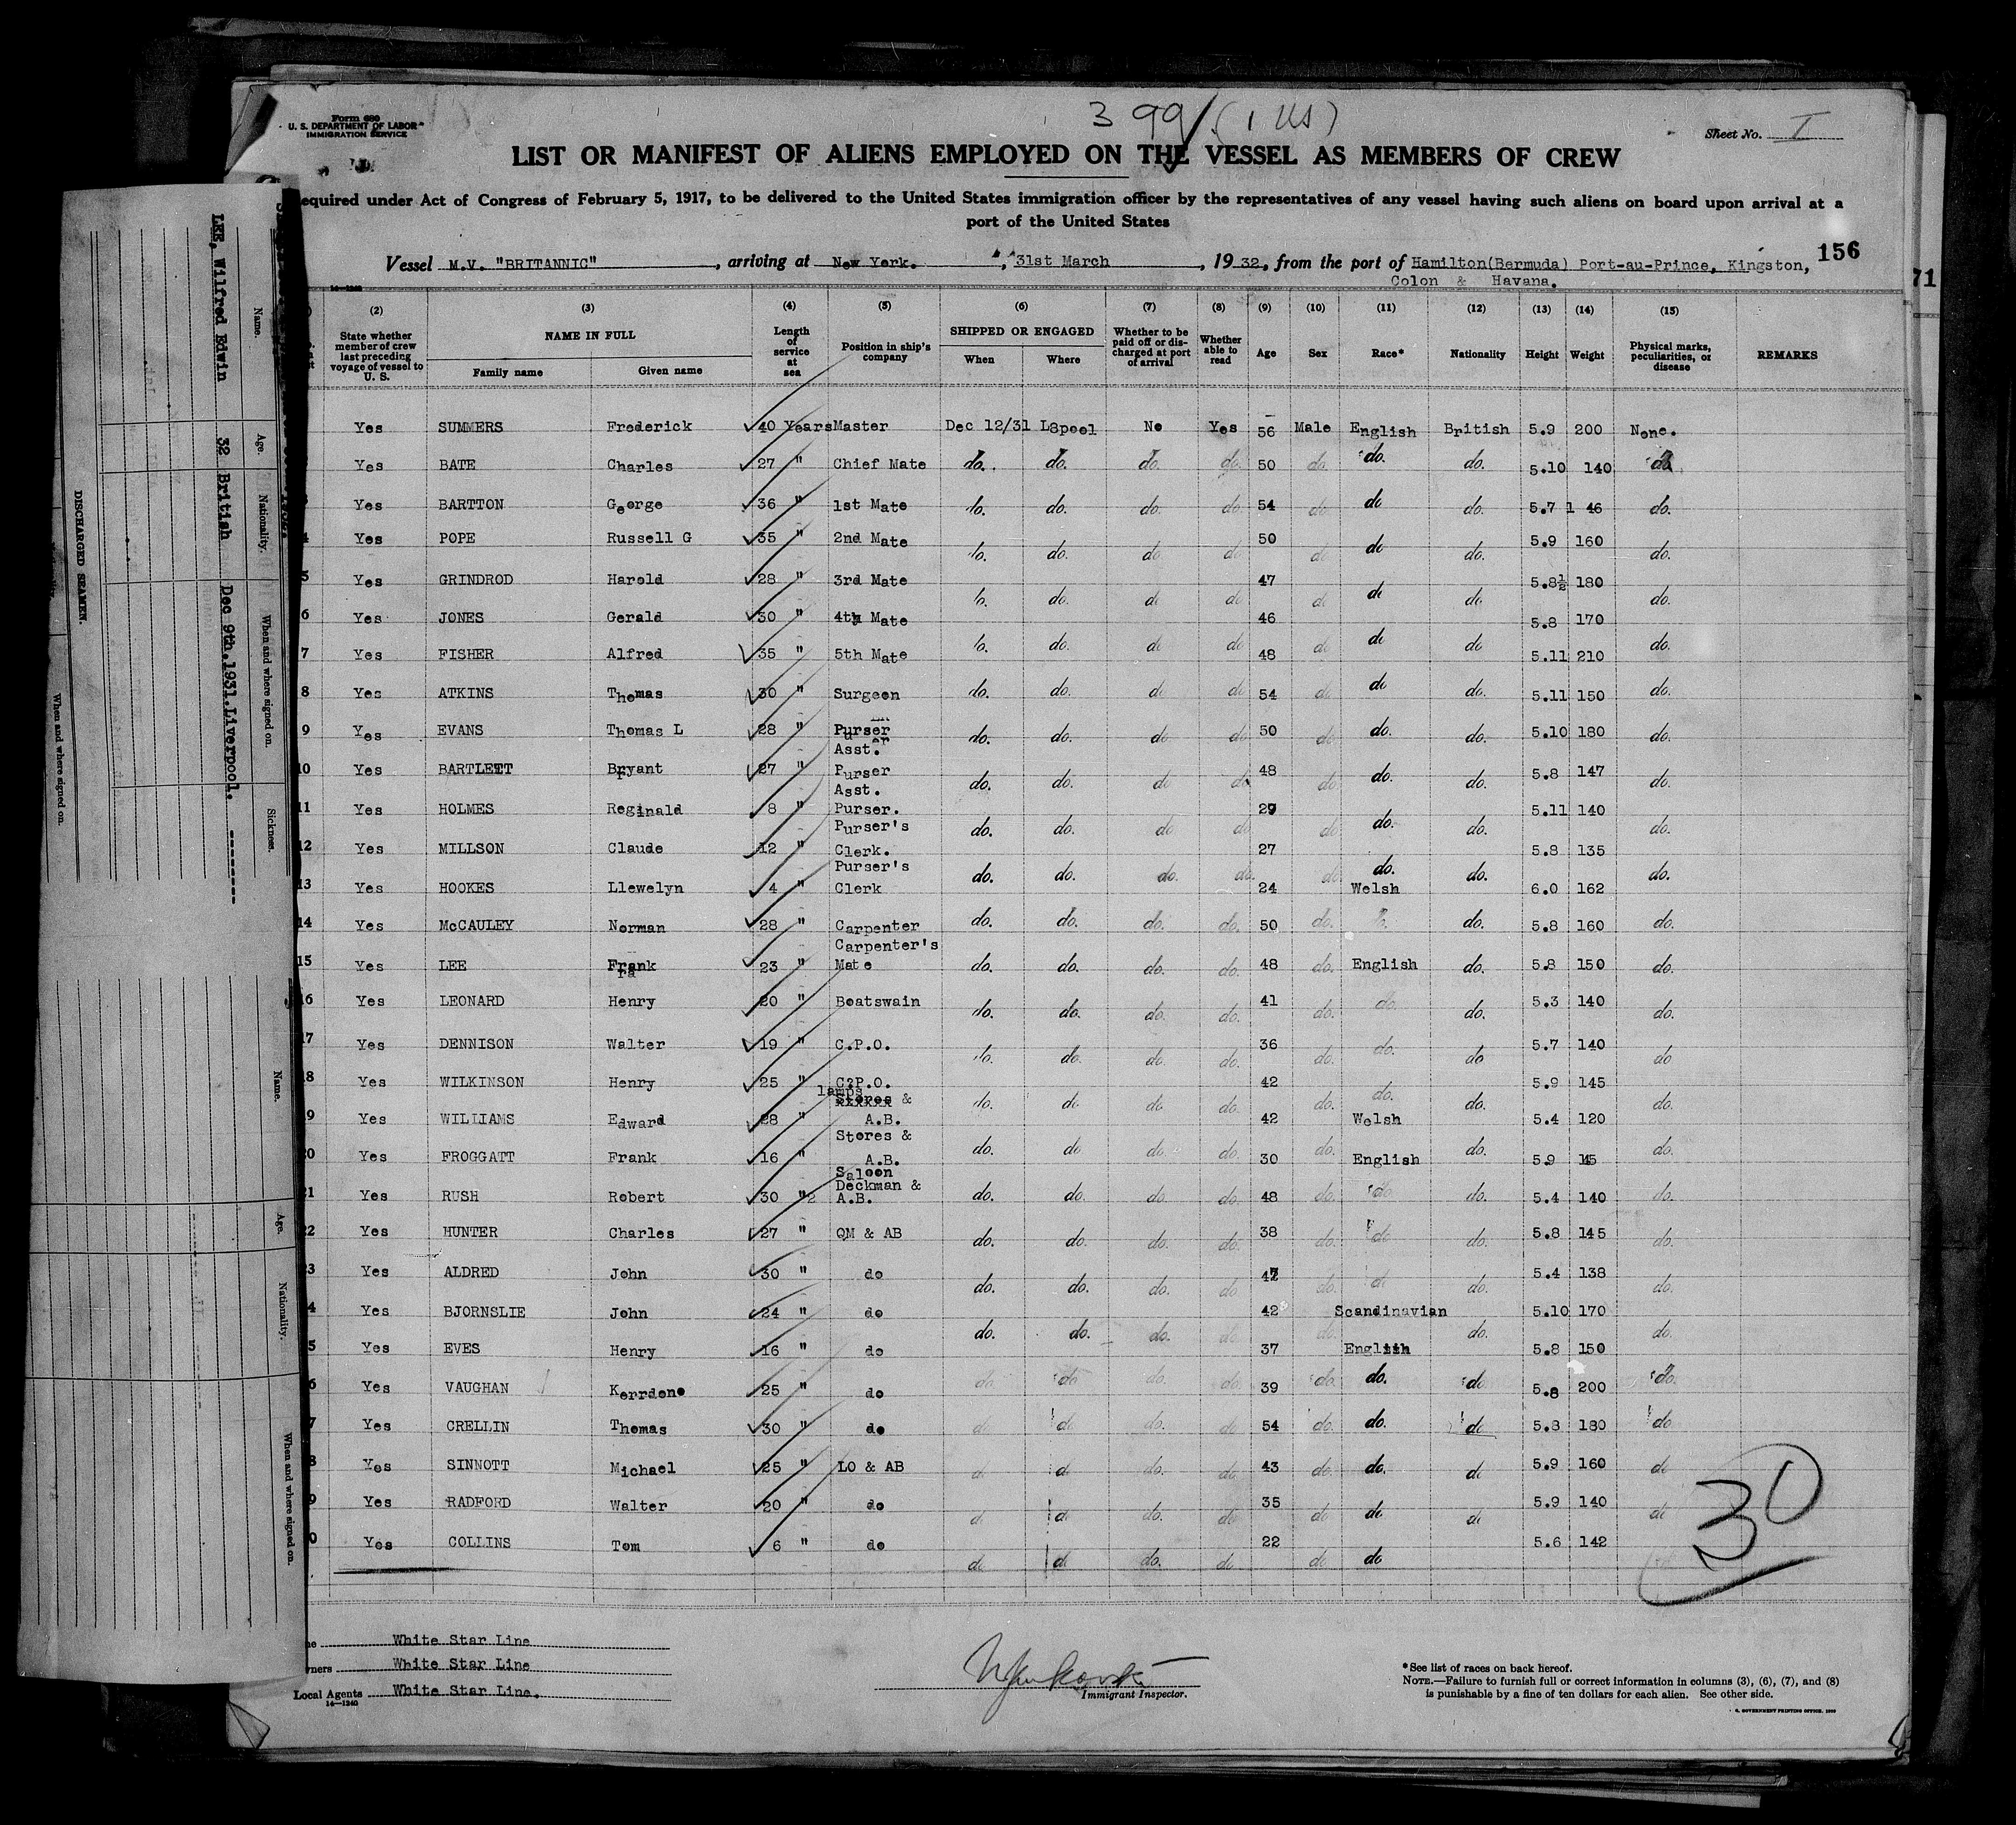 Form 680
U. S. DEPARTMENT OF LABOR
IMMIGRATION SERVICE
3 99 (1 US)
Sheet No. I
LIST OR MANIFEST OF ALIENS EMPLOYED ON THE VESSEL AS MEMBERS OF CREW
equired under Act of Congress of February 5, 1917, to be delivered to the United States immigration officer by the representatives of any vessel having such aliens on board upon arrival at a
port of the United States
156
Vessel M.V. "BRITANNIC", arriving at New York., 31st March, 19 32, from the port of Hamilton(Bermuda) Port-au-Prince, Kingston,
Colon & Havana.
71
14—1240
(2) (3) (4) (5) (6) (7) (8) (9) (10) (11) (12) (13) (14) (15)
State whether member of crew last preceding voyage of vessel to U. S.
NAME IN FULL
Family name Given name
Length of service at sea
Position in ship's company
SHIPPED OR ENGAGED
When Where
Whether to be paid off or discharged at port of arrival
Whether able to read
Age Sex Race* Nationality Height Weight
Physical marks, peculiarities, or disease
REMARKS
Yes SUMMERS Frederick 40 Years Master Dec 12/31 L8pool No Yes 56 Male English British 5.9 200 None.
Yes BATE Charles 27 " Chief Mate do. do. do. do. 50 do. do. do. 5.10 140 do.
3 Yes BARTTON George 36 " 1st Mate do. do. do. do. 54 do do do. 5.7 1 46 do.
4 Yes POPE Russell G 35 " 2nd Mate do. do. do do 50 do do do. 5.9 160 do.
5 Yes GRINDROD Harold 28 " 3rd Mate do. do. do do 47 do do do. 5.8½ 180 do.
6 Yes JONES Gerald 30 " 4th Mate do. do. do do 46 do do do 5.8 170 do.
7 Yes FISHER Alfred 35 " 5th Mate do. do. do do 48 do do do. 5.11 210 do.
8 Yes ATKINS Thomas 30 " Surgeon do. do. do do 54 do do do. 5.11 150 do.
9 Yes EVANS Thomas L 28 " Purser do. do. do do 50 do do. do. 5.10 180 do.
10 Yes BARTLETT Bryant 27 " Asst. Purser do. do. do do. 48 do. do. do. 5.8 147 do.
11 Yes HOLMES Reginald 8 " Asst. Purser. do. do. do do. 29 do do. do. 5.11 140 do.
12 Yes MILLSON Claude 12 " Purser's Clerk. do. do. do. do. 27 do. do. do. 5.8 135 do.
13 Yes HOOKES Llewelyn 4 " Purser's Clerk 24 Welsh 6.0 162
14 Yes McCAULEY Norman 28 " Carpenter do. do. do. do. 50 do. do. 5.8 160 do.
15 Yes LEE Frank 23 " Carpenter's Mate do. do. do. do. 48 do. English do. 5.8 150 do.
16 Yes LEONARD Henry 20 " Boatswain do. do. do. do. 41 do. do. do. 5.3 140 do.
17 Yes DENNISON Walter 19 " C.P.O. do. do. do. do. 36 do. do. do 5.7 140 do
18 Yes WILKINSON Henry 25 " C?P.O. do. do do do. 42 do. do. do. 5.9 145 do.
19 Yes WILLIAMS Edward 28 " lamps & A.B. do. do do do. 42 do. Welsh do. 5.4 120 do.
20 Yes FROGGATT Frank 16 " Stores & A.B. 30 English 5.9 145
21 Yes RUSH Robert 30 "2 Saloon Deckman & A.B. do. do. do. do. 48 do. do do. 5.4 140 do.
22 Yes HUNTER Charles 27 " QM & AB do. do. do. do. 38 do. do do. 5.8 145 do.
3 Yes ALDRED John 30 " do do. do. do. do. 47 do. d do. 5.4 138 do.
4 Yes BJORNSLIE John 24 " do do. do. do. do. 42 do. Scandinavian do. 5.10 170 do.
5 Yes EVES Henry 16 " do 37 English 5.8 150
6 Yes VAUGHAN Kerrdene 25 " do do do do. do. 39 do. do. do 5.8 200 do.
7 Yes CRELLIN Thomas 30 " do do do do. do. 54 do. do. do 5.8 180 do
8 Yes SINNOTT Michael 25 " LO & AB d d do. do. 43 do. do. do 5.9 160 do
9 Yes RADFORD Walter 20 " do d d do. do 35 do do do 5.9 140 do
0 Yes COLLINS Tom 6 " do do d do. do 22 do do 5.6 142
30
White Star Line
ners White Star Line
Local Agents White Star Line.
14—1240
Immigrant Inspector.
*See list of races on back hereof.
NOTE.—Failure to furnish full or correct information in columns (3), (6), (7), and (8)
is punishable by a fine of ten dollars for each alien. See other side.
Name. Age. Nationality. When and where signed on. Sicknees.
LEE, Wilfred Edwin 32 British Dec 9th.1931.Liverpool. --------
DISCHARGED SEAMEN.
When and where signed on.
Name. Age. Nationality. When and where signed on.